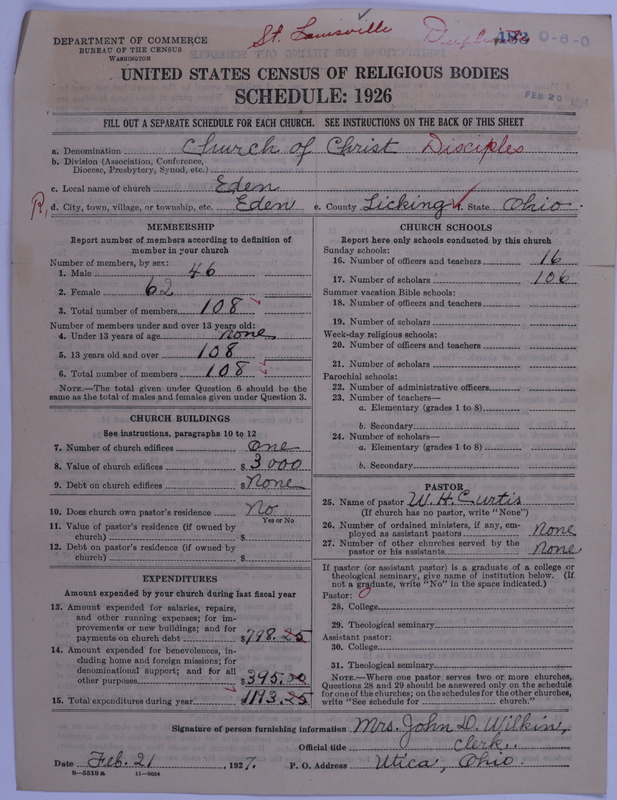 St. Louisville
Disciples
183 0-6-0
DEPARTMENT OF COMMERCE
BUREAU OF THE CENSUS
WASHINGTON
UNITED STATES CENSUS OF RELIGIOUS BODIES
SCHEDULE: 1926
FEB 26
FILL OUT A SEPARATE SCHEDULE FOR EACH CHURCH. SEE INSTRUCTIONS ON THE BACK OF THIS SHEET
a. Denomination Church of Christ Disciples
b. Division (Association, Conference,
Diocese, Presbytery, Synod, etc.)
c. Local name of church Eden
R, d. City, town, village, or township, etc. Eden e. County Licking f. State Ohio.
MEMBERSHIP
Report number of members according to definition of
member in your church
Number of members, by sex:
1. Male 46
2. Female 62
3. Total number of members 108
Number of members under and over 13 years old:
4. Under 13 years of age none
5. 13 years old and over 108
6. Total number of members 108
NOTE.—The total given under Question 6 should be the
same as the total of males and females given under Question 3.
CHURCH BUILDINGS
See instructions, paragraphs 10 to 12
7. Number of church edifices one
8. Value of church edifices $3000
9. Debt on church edifices $None
10. Does church own pastor's residence No
Yes or No
11. Value of pastor's residence (if owned by
church) $
12. Debt on pastor's residence (if owned by
church) $
EXPENDITURES
Amount expended by your church during last fiscal year
13. Amount expended for salaries, repairs,
and other running expenses; for im-
provements or new buildings; and for
payments on church debt $798.25
14. Amount expended for benevolences, in-
cluding home and foreign missions; for
denominational support; and for all
other purposes $395.00
15. Total expenditures during year $1193.25
CHURCH SCHOOLS
Report here only schools conducted by this church
Sunday schools:
16. Number of officers and teachers 16
17. Number of scholars 106
Summer vacation Bible schools:
18. Number of officers and teachers
19. Number of scholars
Week-day religious schools:
20. Number of officers and teachers
21. Number of scholars
Parochial schools:
22. Number of administrative officers
23. Number of teachers—
a. Elementary (grades 1 to 8)
b. Secondary
24. Number of scholars—
a. Elementary (grades 1 to 8)
b. Secondary
PASTOR
25. Name of pastor W. H. Curtis
(If church has no pastor, write "None")
26. Number of ordained ministers, if any, em-
ployed as assistant pastors None
27. Number of other churches served by the
pastor or his assistants None
If pastor (or assistant pastor) is a graduate of a college or
theological seminary, give name of institution below. (If
not a graduate, write "No" in the space indicated.)
Pastor: 0
28. College
29. Theological seminary
Assistant pastor:
30. College
31. Theological seminary
NOTE.—Where one pastor serves two or more churches,
Questions 28 and 29 should be answered only on the schedule
for one of the churches; on the schedules for the other churches,
write "See schedule for church."
Signature of person furnishing information Mrs. John D. Wilkin,
Official title Clerk.
Date Feb. 21, 1927. P. O. Address Utica, Ohio.
8—5518 a 11—9054